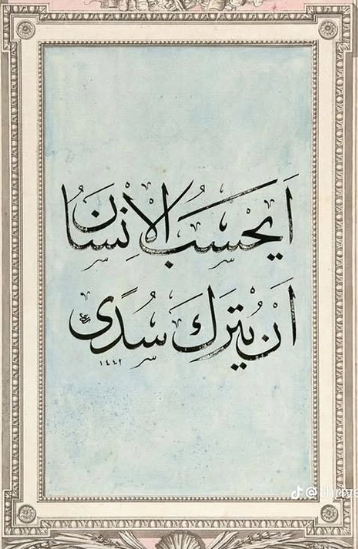 اَيَحْسَبُ الْاِنْسَانُ
اَنْ يُتْرَكَ سُدًى
١٤٤٢